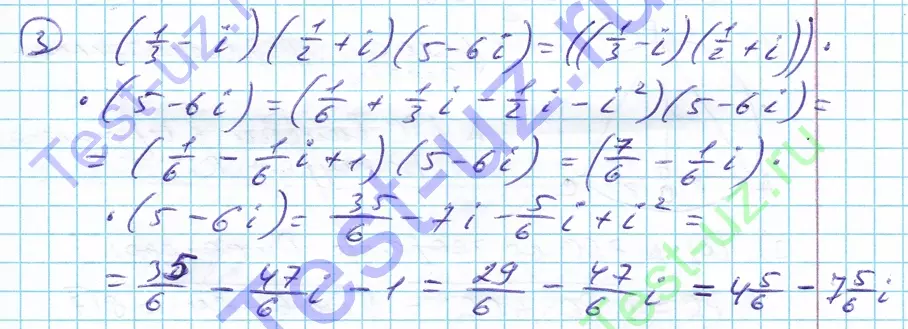 3 (1/3 - i)(1/2 + i)(5 - 6i) = ((1/3 - i)(1/2 + i)) ·
· (5 - 6i) = (1/6 + 1/3 i - 1/2 i - i²)(5 - 6i) =
= (1/6 - 1/6 i + 1)(5 - 6i) = (7/6 - 1/6 i) ·
· (5 - 6i) = 35/6 - 7i - 5/6 i + i² =
= 35/6 - 47/6 i - 1 = 29/6 - 47/6 i = 4 5/6 - 7 5/6 i
Test-uz.ru
Test-uz.ru
Test-uz.ru